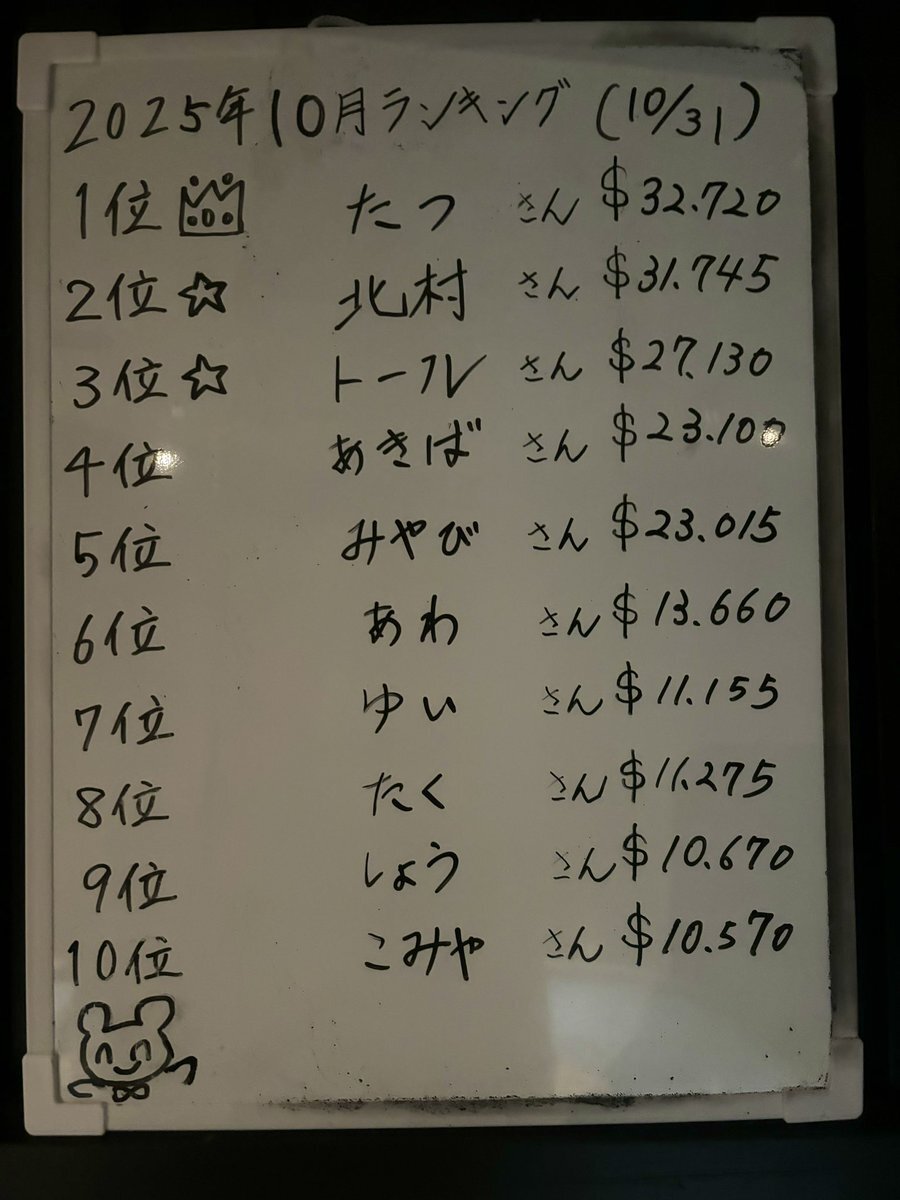 2025年10月ランキング (10/31)
1位 たつ さん $32.720
2位☆ 北村 さん $31.745
3位☆ トール さん $27.130
4位 あきば さん $23.100
5位 みやび さん $23.015
6位 あわ さん $13.660
7位 ゆい さん $11.155
8位 たく さん $11.275
9位 しょう さん $10.670
10位 こみや さん $10.570